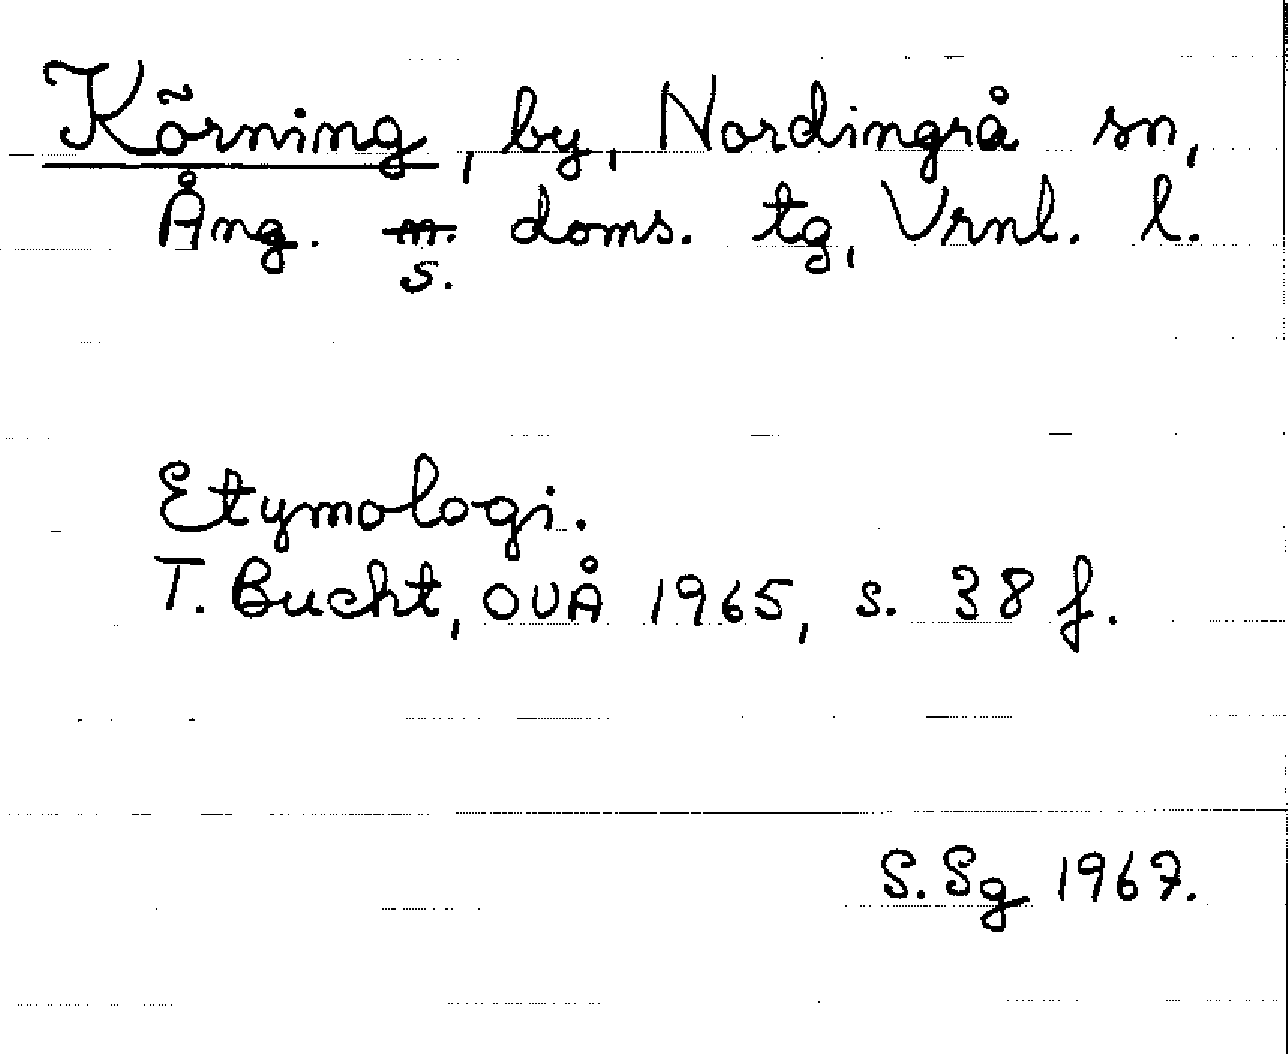 Körning, by, Nordingrå sn,
Ång. m. doms. tg, Vrnl. l.
s.
Etymologi.
T. Bucht, OUÅ 1965, s. 38 f.
S. Sg 1967.